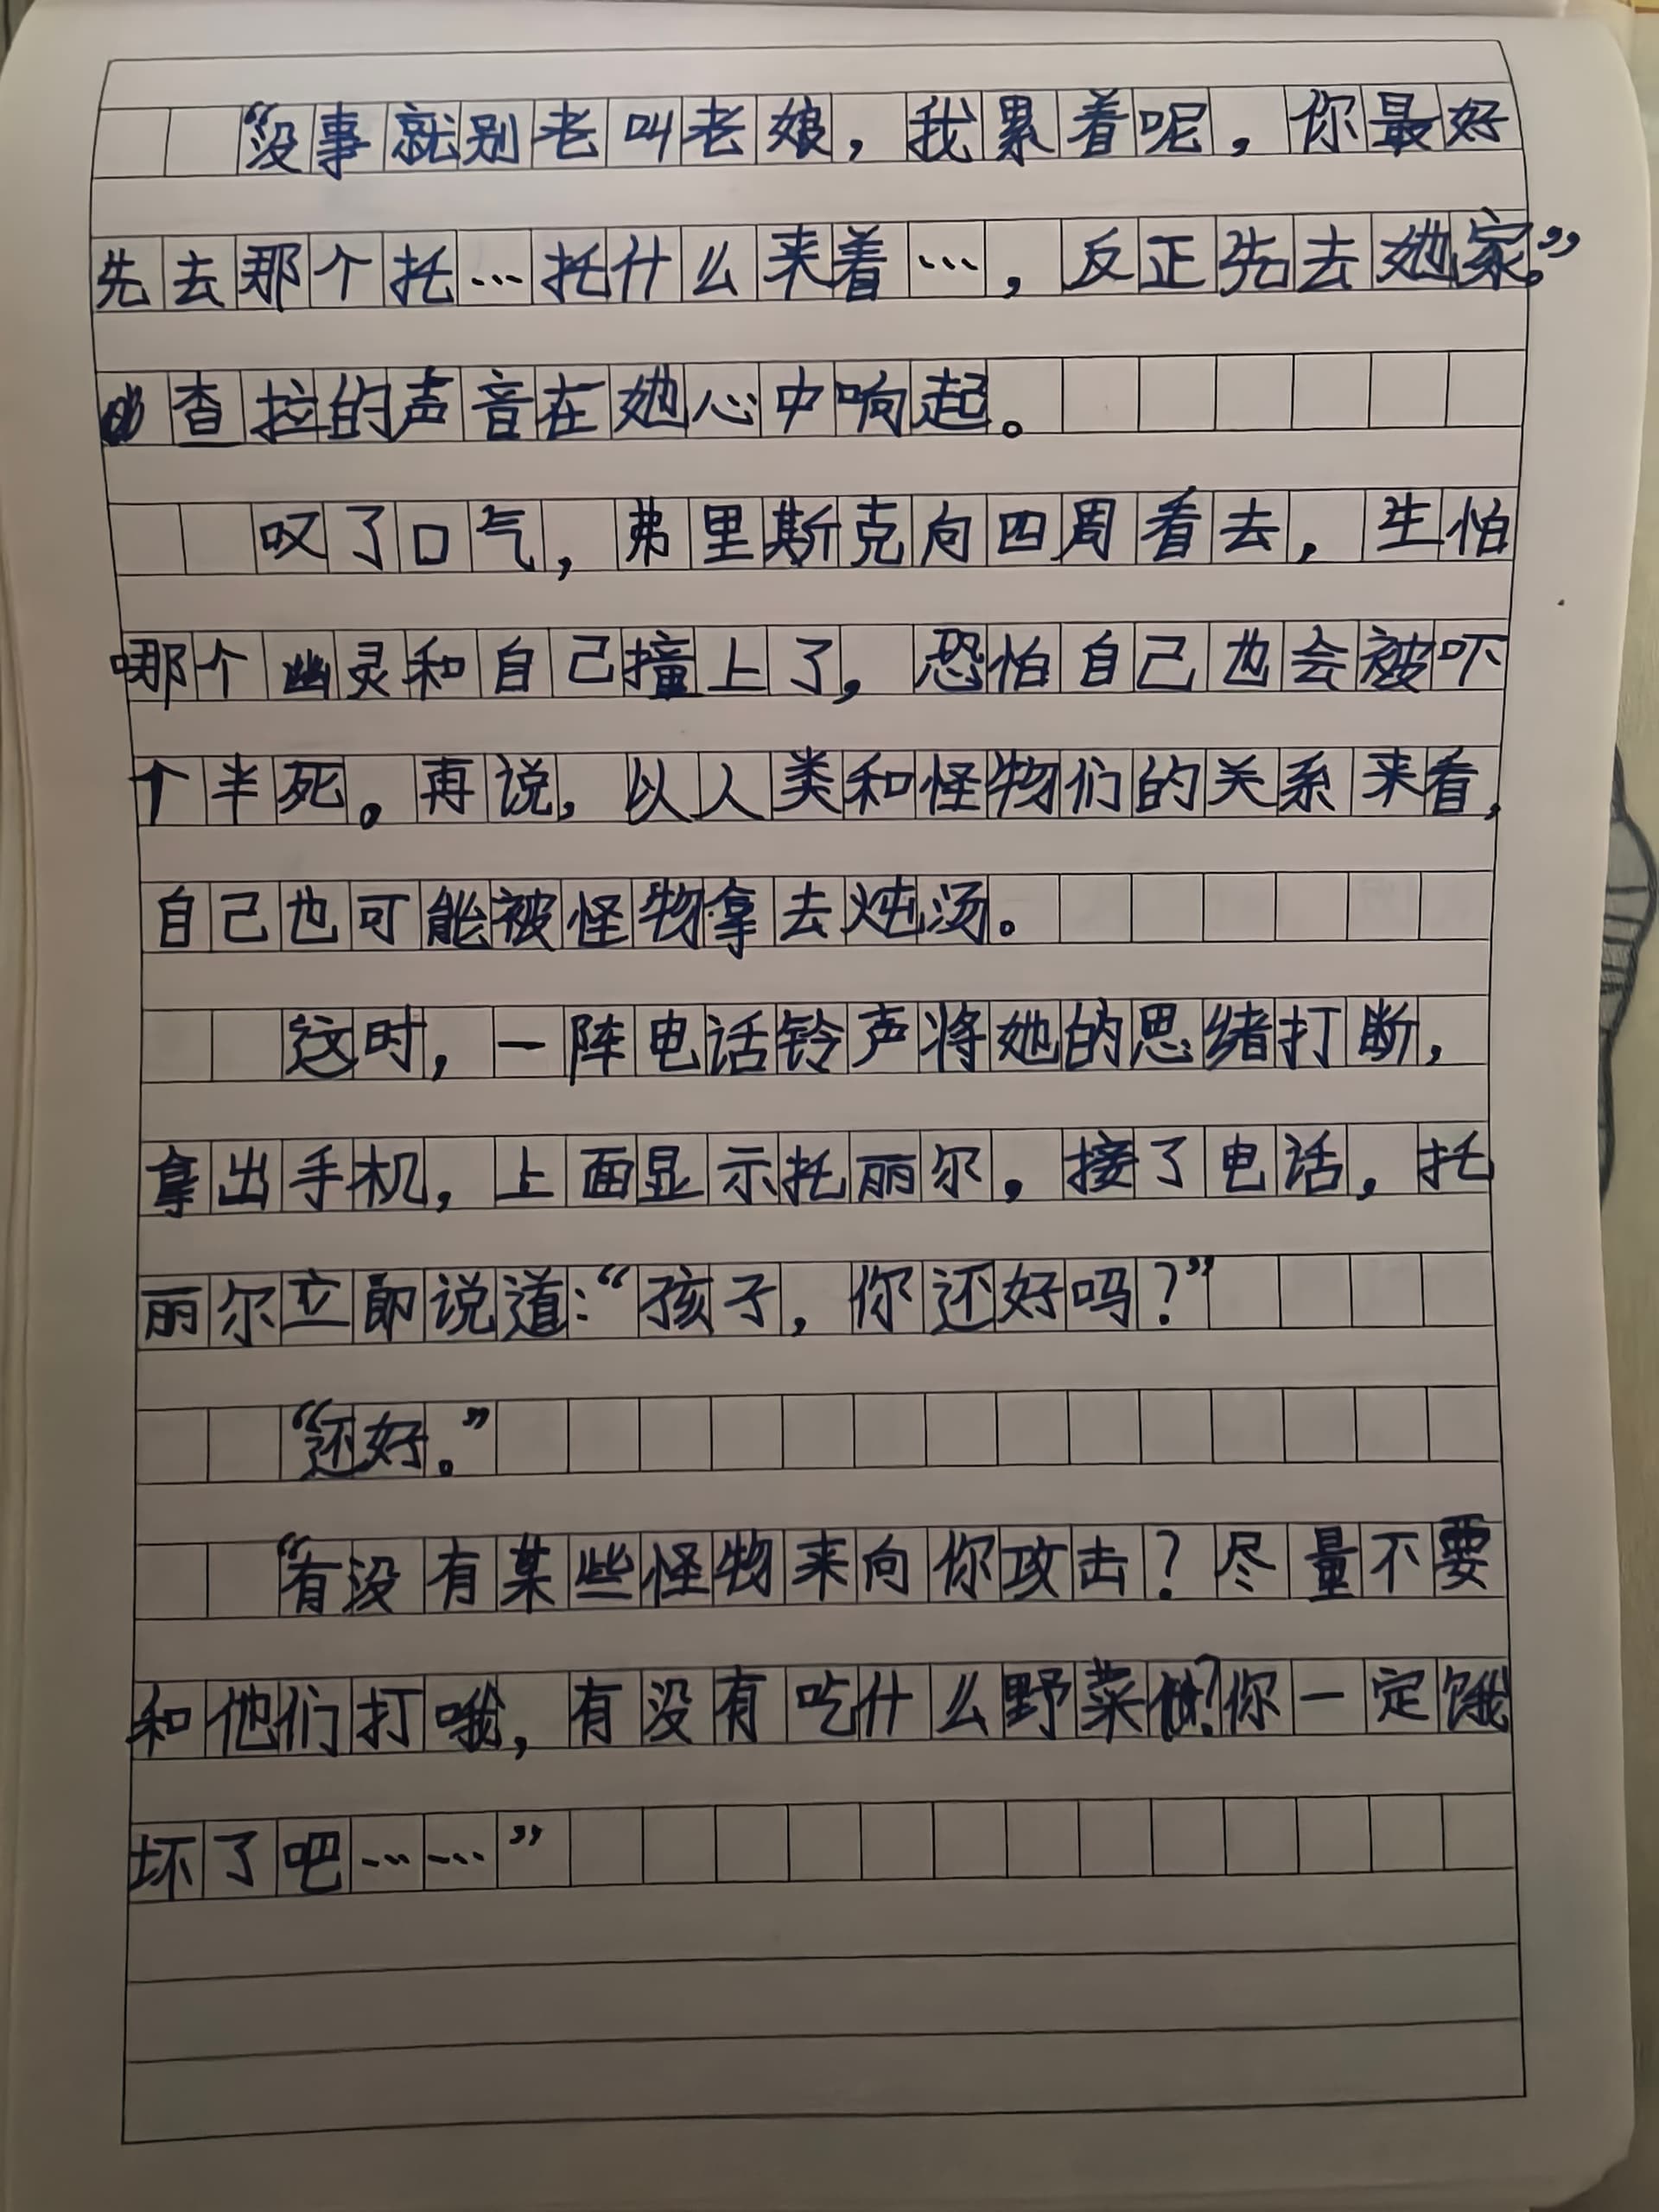 “没事就别老叫老娘，我累着呢，你最好
先去那个托…托什么来着…，反正先去她家。”
查拉的声音在她心中响起。
叹了口气，弗里斯克向四周看去，生怕
哪个幽灵和自己撞上了，恐怕自己也会被吓
个半死。再说，以人类和怪物们的关系来看，
自己也可能被怪物拿去炖汤。
这时，一阵电话铃声将她的思绪打断，
拿出手机，上面显示托丽尔，接了电话，托
丽尔立即说道：“孩子，你还好吗？”
“还好。”
“有没有某些怪物来向你攻击？尽量不要
和他们打哦，有没有吃什么野菜？你一定饿
坏了吧……”